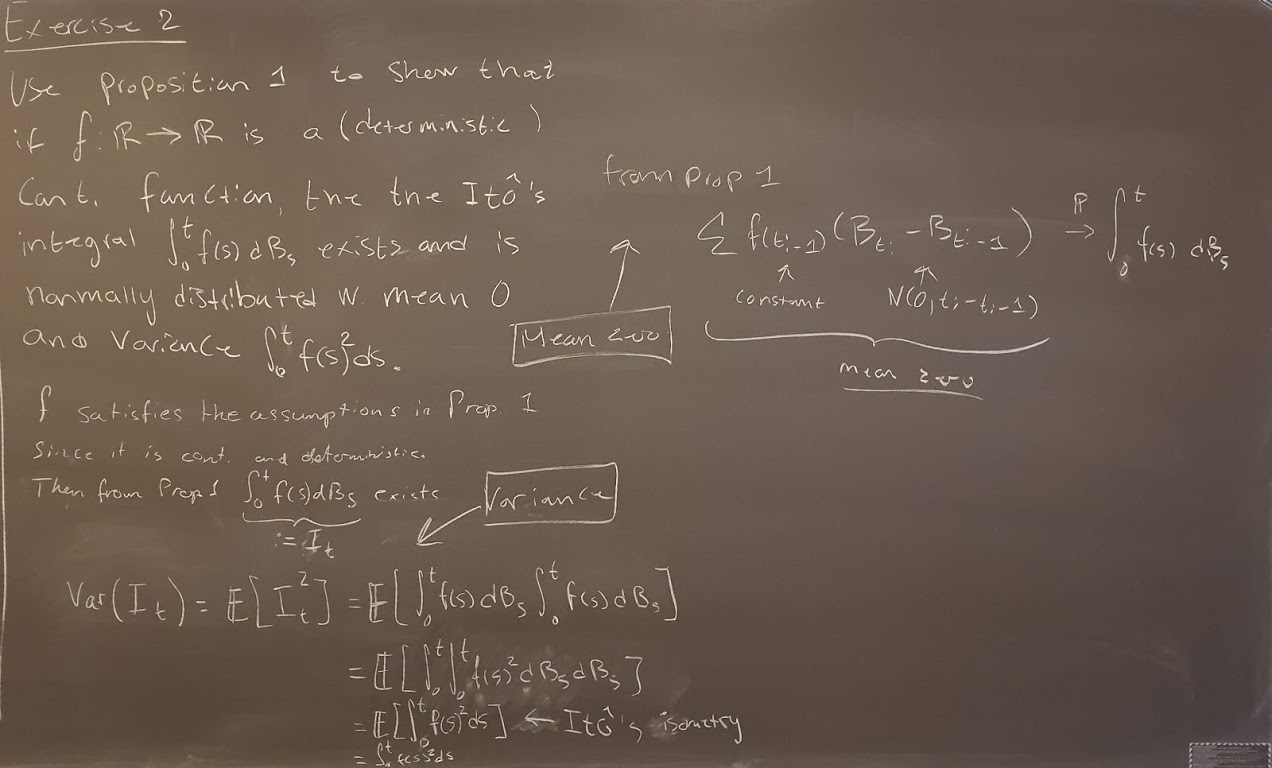 Exercise 2
Use Proposition 1 to show that
if f: ℝ → ℝ is a (deterministic)
Cont. function, the the Itô's
integral ∫₀ᵗ f(s) dBₛ exists and is
normally distributed w. mean 0
and Variance ∫₀ᵗ f(s)² ds.
f satisfies the assumptions in Prop. 1
Since it is cont. and deterministic.
Then from Prop 1 ∫₀ᵗ f(s) dBₛ exists
:= Iₜ
Variance
Var(Iₜ) = 𝔼[Iₜ²] = 𝔼[∫₀ᵗ f(s) dBₛ ∫₀ᵗ f(s) dBₛ]
= 𝔼[∫₀ᵗ ∫₀ᵗ f(s)² dBₛ dBₛ]
= 𝔼[∫₀ᵗ f(s)² ds] ← Itô's isometry
= ∫₀ᵗ f(s)² ds
from prop 1
∑ f(tᵢ₋₁)(B_{tᵢ} - B_{tᵢ₋₁}) →^ℙ ∫₀ᵗ f(s) dBₛ
↑ ↑
constant N(0, tᵢ - tᵢ₋₁)
Mean zero
mean zero